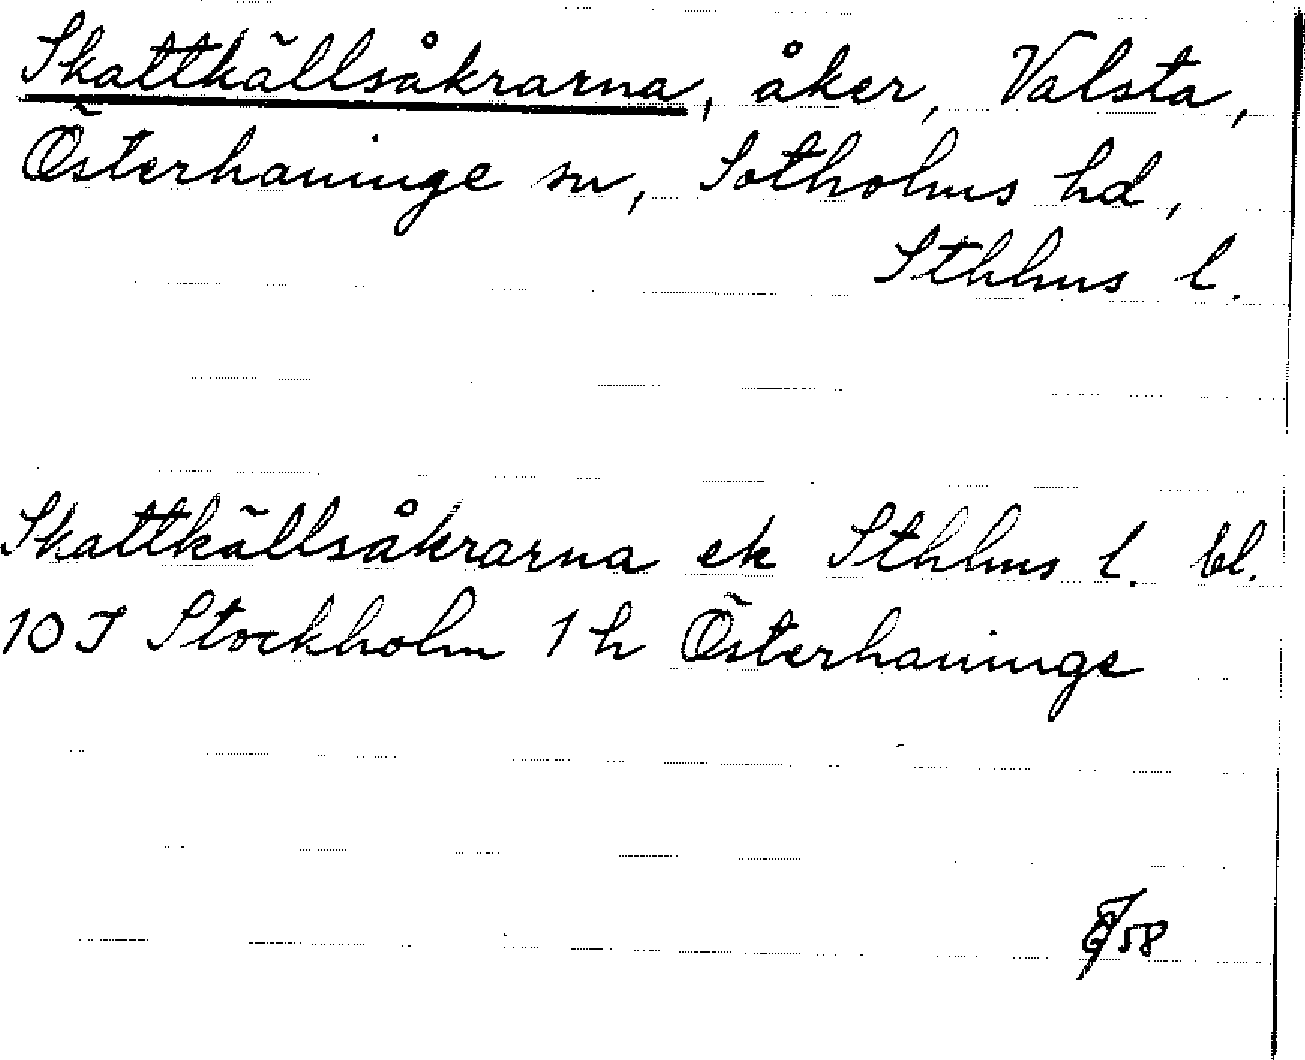 Skattkällsåkrarna, åker, Valsta,
Österhaninge sn, Sotholms hd,
Sthlms l.
Skattkällsåkrarna ek Sthlms l. bl.
10 I Stockholm 1 h Österhaninge
58